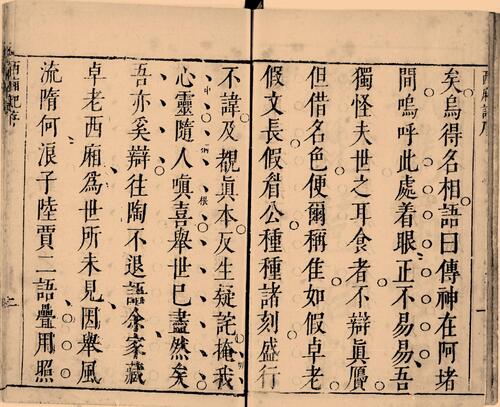 矣烏得名相語曰傳神在阿堵
間嗚呼此處着眼正不易易吾
獨怪夫世之耳食者不辯眞贋
但借名色便爾稱佳如假卓老
假文長假眉公種種諸刻盛行
不諱及覩眞本反生疑詫掩我
心靈隨人嗔喜舉世已盡然矣
吾亦奚辯往陶不退語余家藏
卓老西廂爲世所未見因舉風
流隋何浪子陸賈二語疊用照
西廂記序